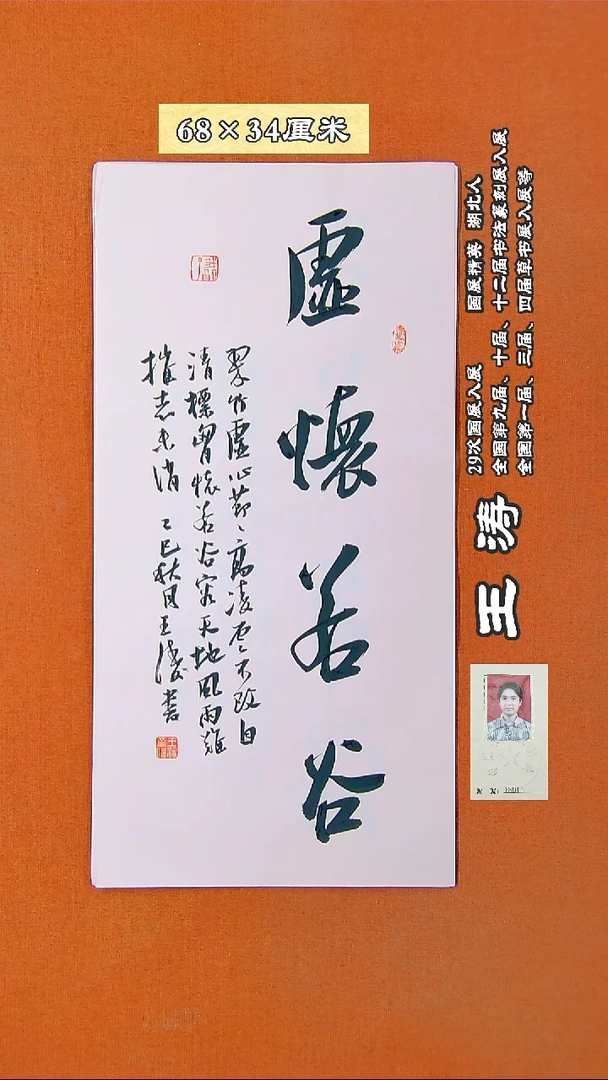 68×34厘米
虚懷若谷
翠竹虚心節節高凌雲不改自
清標胸懷若谷容天地風雨難
摧志未消 乙巳秋月王濤書
29次国展入展 国展精英 湖北人
全国第九届、十届、十二届书法篆刻展入展
全国第一届、三届、四届草书展入展等
王涛